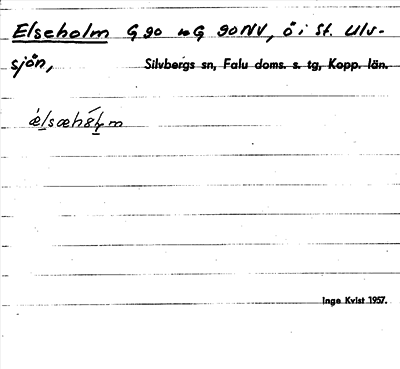 Elseholm G 90 o G 90 NV, ö i St. Ulv-
sjön, Silvbergs sn, Falu doms. s. tg, Kopp. län.
Inge Kvist 1957.